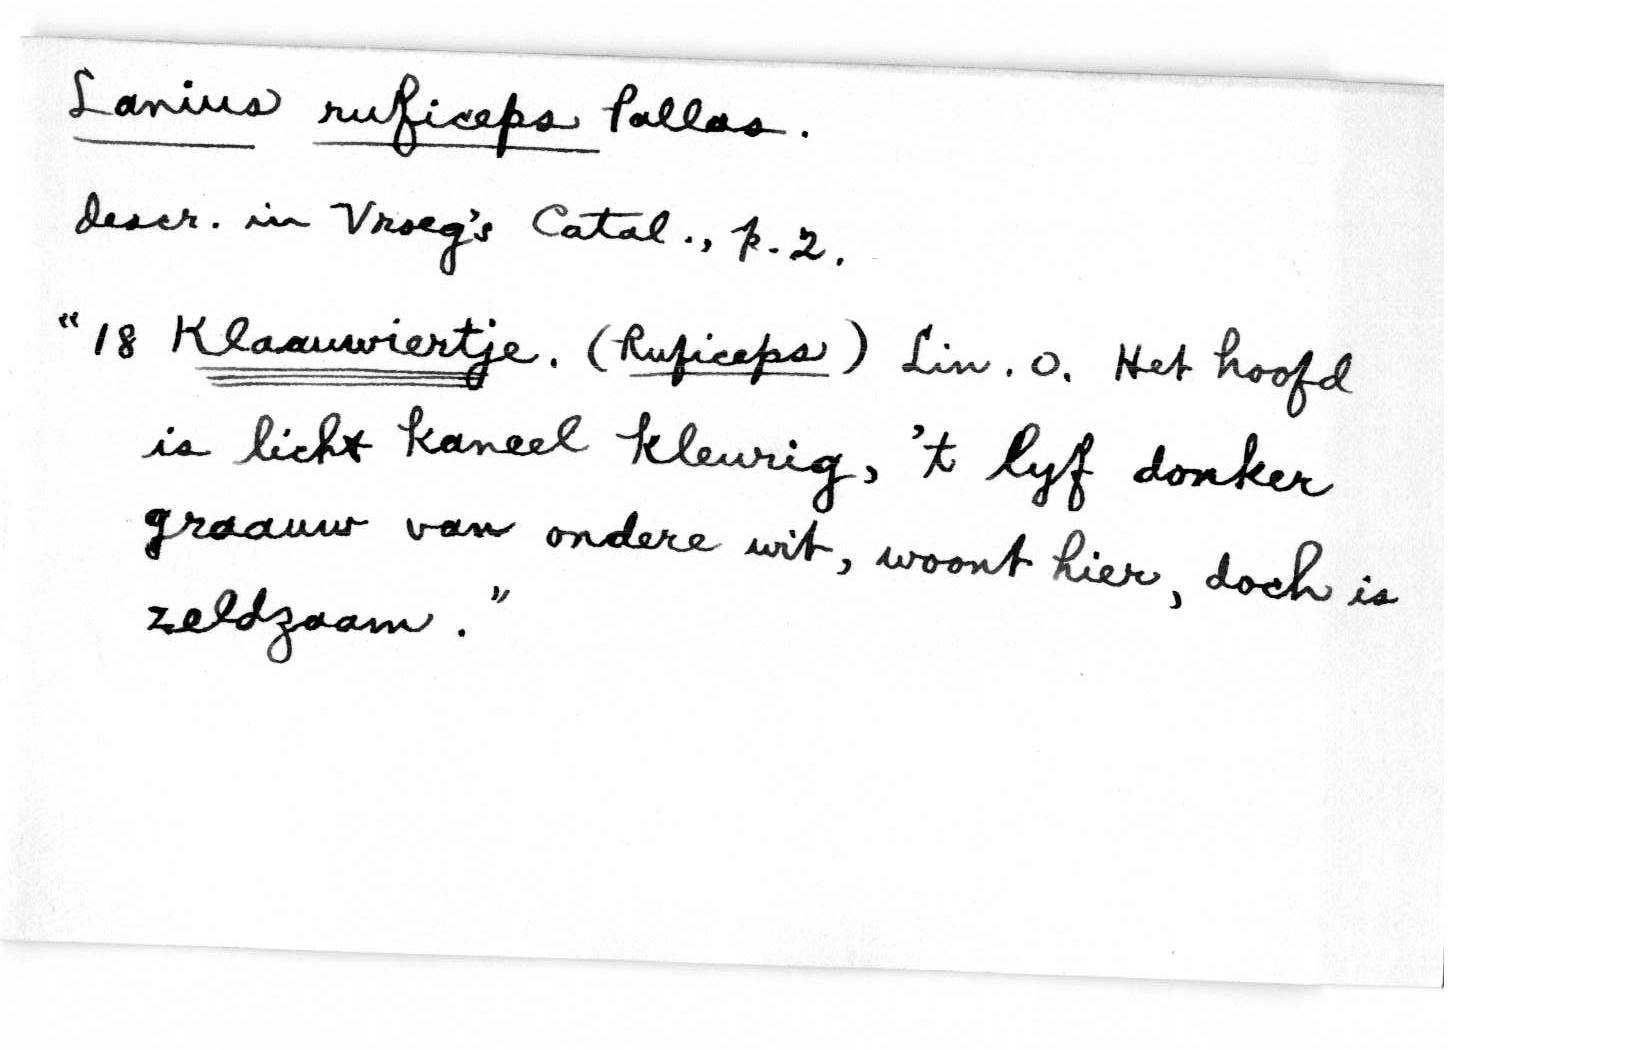 Lanius ruficeps Pallas.
descr. in Vroeg's Catal., p. 2.
"18 Klaauwiertje. (Ruficeps) Lin. o. Het hoofd
is licht kaneel kleurig, 't lyf donker
graauw van ondere wit, woont hier, doch is
zeldzaam."